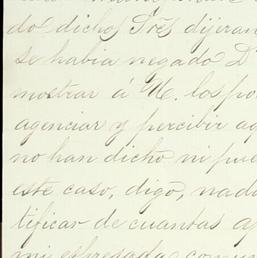 do, dichos Sres dijeran
se habia negado D
mostrar á U. los po
agenciar y percibir aq
no han dicho ni pue
este caso, digo, nad
tificar de cuantas a
mi espresada comun